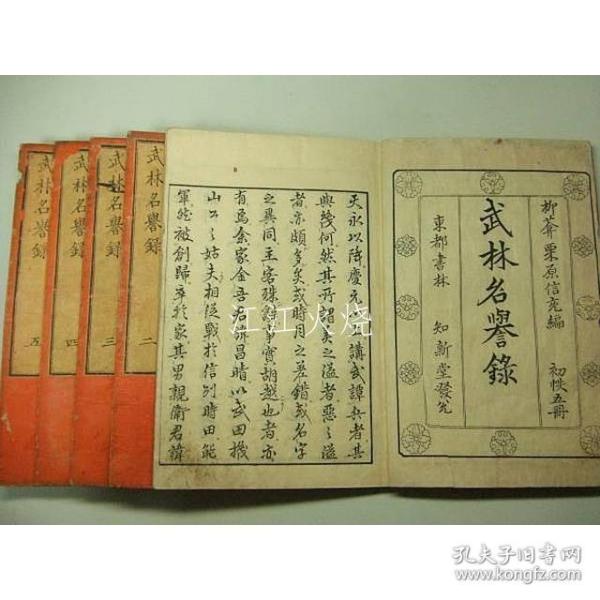 柳葊 栗原信充編 初帙五冊
武林名譽錄
東都書林 知新堂發兌
天永以降慶元 講武譚兵者其
與幾何然其所謂美之溢者惡之溢
者亦頗多矣或時月之差錯或名字
之異同主客殊 事實胡越也者亦
有焉余家金吾君諱昌晴以武田機
山公之姑夫相從戰於信州時田能
軍敗被創歸卒於家其男親衛君諱
武林名譽錄 二
武林名譽錄 三
武林名譽錄 四
武林名譽錄 五
江江火烧
孔夫子旧书网
www.kongfz.com